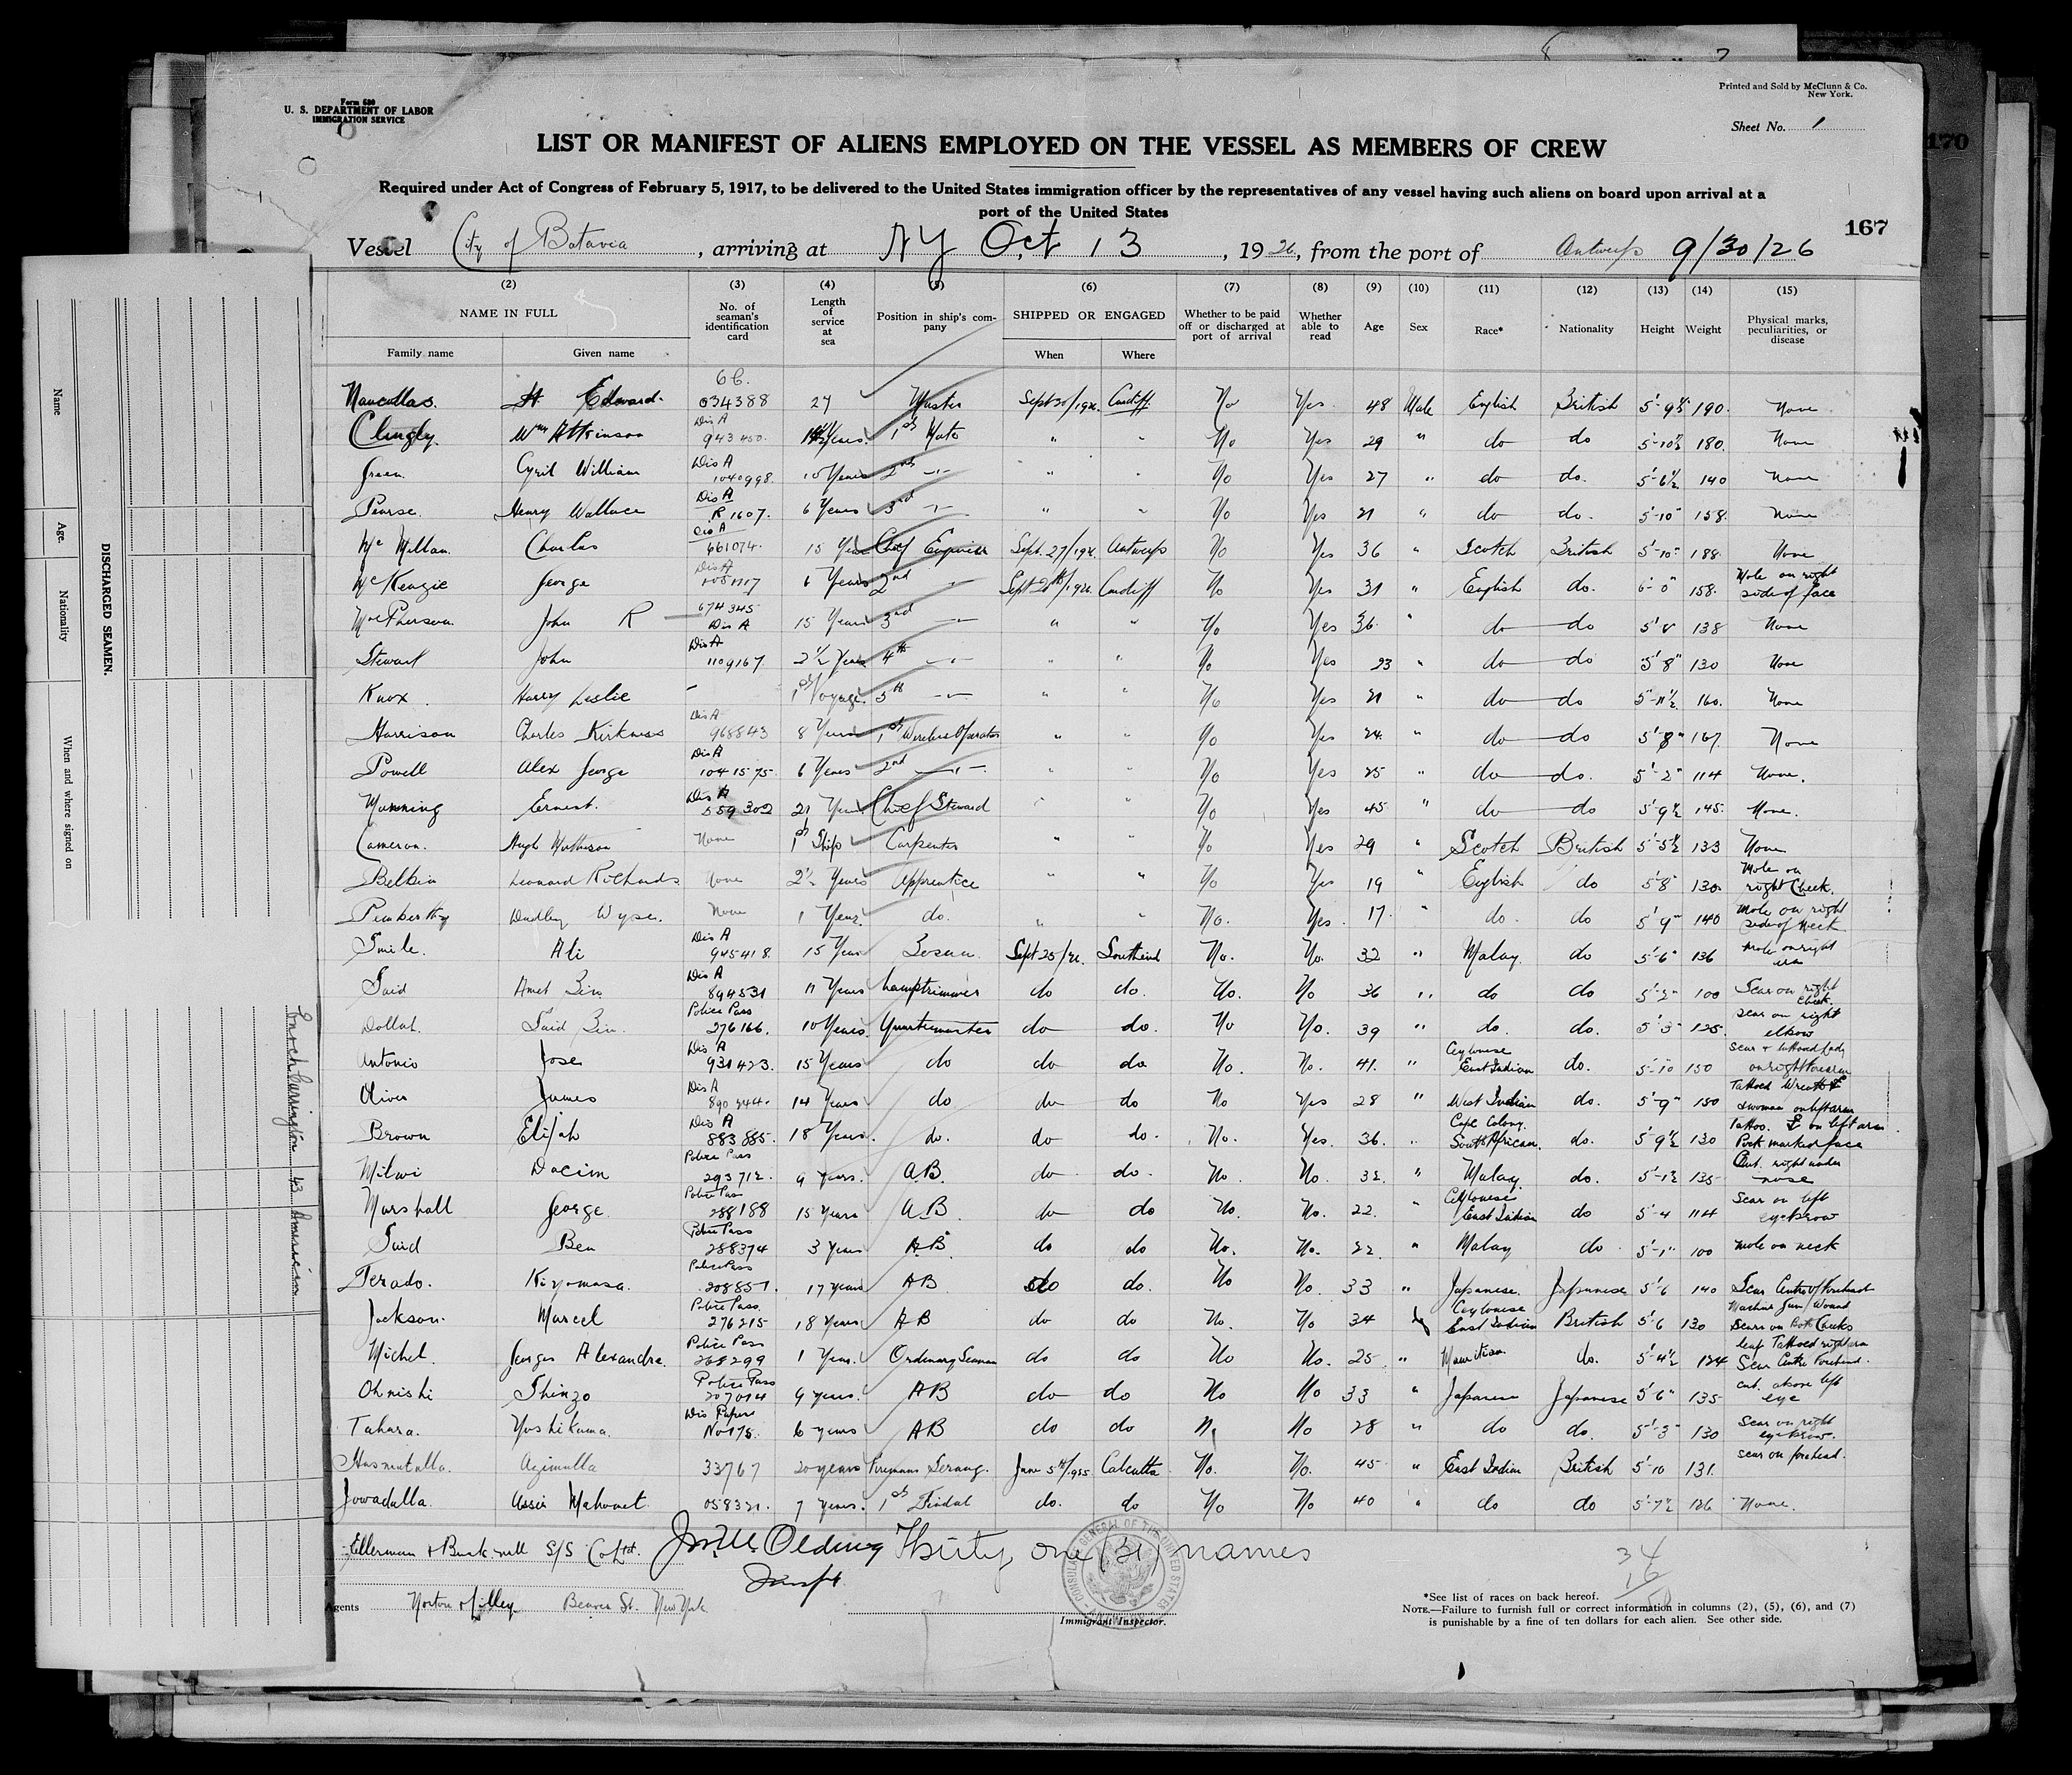 Form 680
U. S. DEPARTMENT OF LABOR
IMMIGRATION SERVICE
Printed and Sold by McClunn & Co.
New York.
Sheet No. 1
170
LIST OR MANIFEST OF ALIENS EMPLOYED ON THE VESSEL AS MEMBERS OF CREW
Required under Act of Congress of February 5, 1917, to be delivered to the United States immigration officer by the representatives of any vessel having such aliens on board upon arrival at a
port of the United States
167
Vessel City of Batavia, arriving at NY Oct 13, 1926, from the port of Antwerp 9/30/26
(2) (3) (4) (5) (6) (7) (8) (9) (10) (11) (12) (13) (14) (15)
NAME IN FULL No. of seaman's identification card Length of service at sea Position in ship's company SHIPPED OR ENGAGED Whether to be paid off or discharged at port of arrival Whether able to read Age Sex Race* Nationality Height Weight Physical marks, peculiarities, or disease
Family name Given name When Where
Edward 034388 27 Master Sept 20/1926 Cardiff No Yes 48 Male English British 5'-9½ 190 None
Clingly Wm Atkinson Dis A 943450 Years 1st Mate " " No Yes 29 " do do 5'-10½ 180 None
Green Cyril William Dis A 1040998 10 Years 2nd " " " No Yes 27 " do do 5'-6½ 140 None
Pearse Henry Wallace Dis A R 1607 6 Years 3rd " " " No Yes 21 " do do 5'-10" 158 None
McMillan Charles Dis A 661074 15 Years Chief Engineer Sept 27/1926 Antwerp No Yes 36 " Scotch British 5'-10" 188 None
McKenzie George Dis A 6 Years 2nd " Sept 20th/1926 Cardiff No Yes 31 " English do 6'-0" 158 Mole on right side of face
MacPherson John R 674345 Dis A 15 Years 3rd " " " No Yes 36 " do do 138 None
Stewart John Dis A 1109167 2½ Years 4th " " " No Yes 23 " do do 5'8" 130 None
Knox Harry Leslie - 1st Voyage 5th " " " No Yes 21 " do do 5'-11½ 160 None
Harrison Charles Kirkness Dis A 968843 8 Years 1st Wireless Operator " " No Yes 24 " do do 5'-8" 167 None
Powell Alex George Dis A 1041575 6 Years 2nd " " " No Yes 25 " do do 5'-2" 114 None
Manning Ernest Dis A 559302 21 Years Chief Steward " " No Yes 45 " do do 5'9½ 145 None
Cameron Hugh None 1st Ship Carpenter " " No Yes 29 " Scotch British 5'-5½ 133 None
Belkin Leonard Richards None 2½ Years Apprentice " " No Yes 19 " English do 5'8" 130 Mole on right Cheek
Pemberthy Dudley Wyse None 1 Year do. " " No. Yes 17 " do do 5'9" 140 Mole on right side of Neck
Smile Ali Dis A 945418 15 Years Bosun Sept 25/26 Southend No. No. 32 " Malay do 5'-6" 136 mole on right
Said Amet Bin Dis A 894531 11 Years Lamptrimmer do do. No. No 36 " do do 5'-2" 100 Scar on right Cheek
Dollah Said Bin Police Pass 276166 10 Years Quartermaster do do. No No. 39 " do. do. 5'-3" 125 Scar on right elbow
Antonio Jose Dis A 931423 15 Years do do do No. No. 41 " Ceylonese East Indian do. 5'-10 150 Scar + tattooed lady on right forearm
Oliver James Dis A 890244 14 Years do do do No Yes 28 " West Indian do. 5'9" 150 Tattoed Wreath & woman on left arm
Brown Elijah Dis A 883885 18 Years do. do do. No. Yes. 36 " Cape Colony South African do. 5'9½ 130 Tattoo on left arm Pock marked face
Milwi Dacim Police Pass 293712 9 years A.B. do do. No. No. 32 " Malay do. 5'-1½ 135 Cut right under nose
Marshall George Police Pass 288188 15 Years A.B. do do No. No. 22 " Ceylonese East Indian do 5'4 114 Scar on left eyebrow
Said Ben Police Pass 288374 3 years A.B. do do No. No. 22 " Malay do 5'-1" 100 mole on neck
Terado Kiyomasa Police Pass 208857 17 years AB do do. No No. 33 " Japanese Japanese 5'6 140 Scar Centre of Forehead
Jackson Marcel Police Pass 276215 18 Years AB do do No. No 34 Ceylonese East Indian British 5'6 130 Machine Gun Wound Scars on Both Cheeks
Michel Georges Alexandre Police Pass 268299 1 Year. Ordinary Seaman do do No No. 25 " Mauritian do. 5'4½ 124 leaf Tattoed right arm Scar Centre Forehead
Ohnishi Shinzo Police Pass 207014 9 years AB do do No No 33 " Japanese Japanese 5'6" 135 cut above left eye
Tahara Yoshikuma Dis Papers No 178 6 years AB do do No 28 " do do. 5'-3" 130 Scar on right eyebrow
Husmutulla Azimulla 33767 20 years Firemans Serang June 5th/1925 Calcutta No. No. 45 " East Indian British 5'10 131 scar on forehead
Jowadulla Assir Mahomet 058321 7 years 1st Tindal do. do No No 40 " do do 5'-7½ 126 None
Ellerman & Bucknall S/S Co Ltd. Olding Thirty one (31) names
34
16
Agents Norton Lilley Beaver St. New York
Immigrant Inspector.
*See list of races on back hereof.
NOTE.—Failure to furnish full or correct information in columns (2), (5), (6), and (7)
is punishable by a fine of ten dollars for each alien. See other side.
DISCHARGED SEAMEN.
Name
Age.
Nationality
When and where signed on
Enoch Carrington 43 American